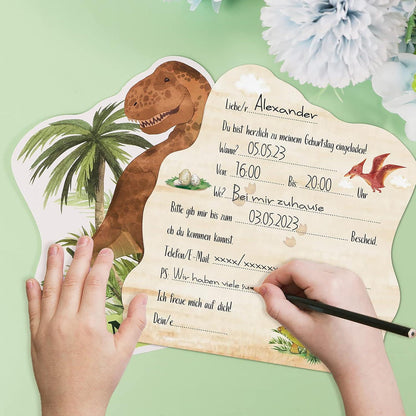 Liebe/r Alexander
Du bist herzlich zu meinem Geburtstag eingeladen!
Wann? 05.05.23
Von 16:00 Bis 20:00 Uhr
Wo? Bei mir zuhause
Bitte gib mir bis zum 03.05.2023 Bescheid,
ob du kommen kannst.
Telefon/E-Mail xxxx/xxxxxx
PS: Wir haben viele
Ich freue mich auf dich!
Dein/e